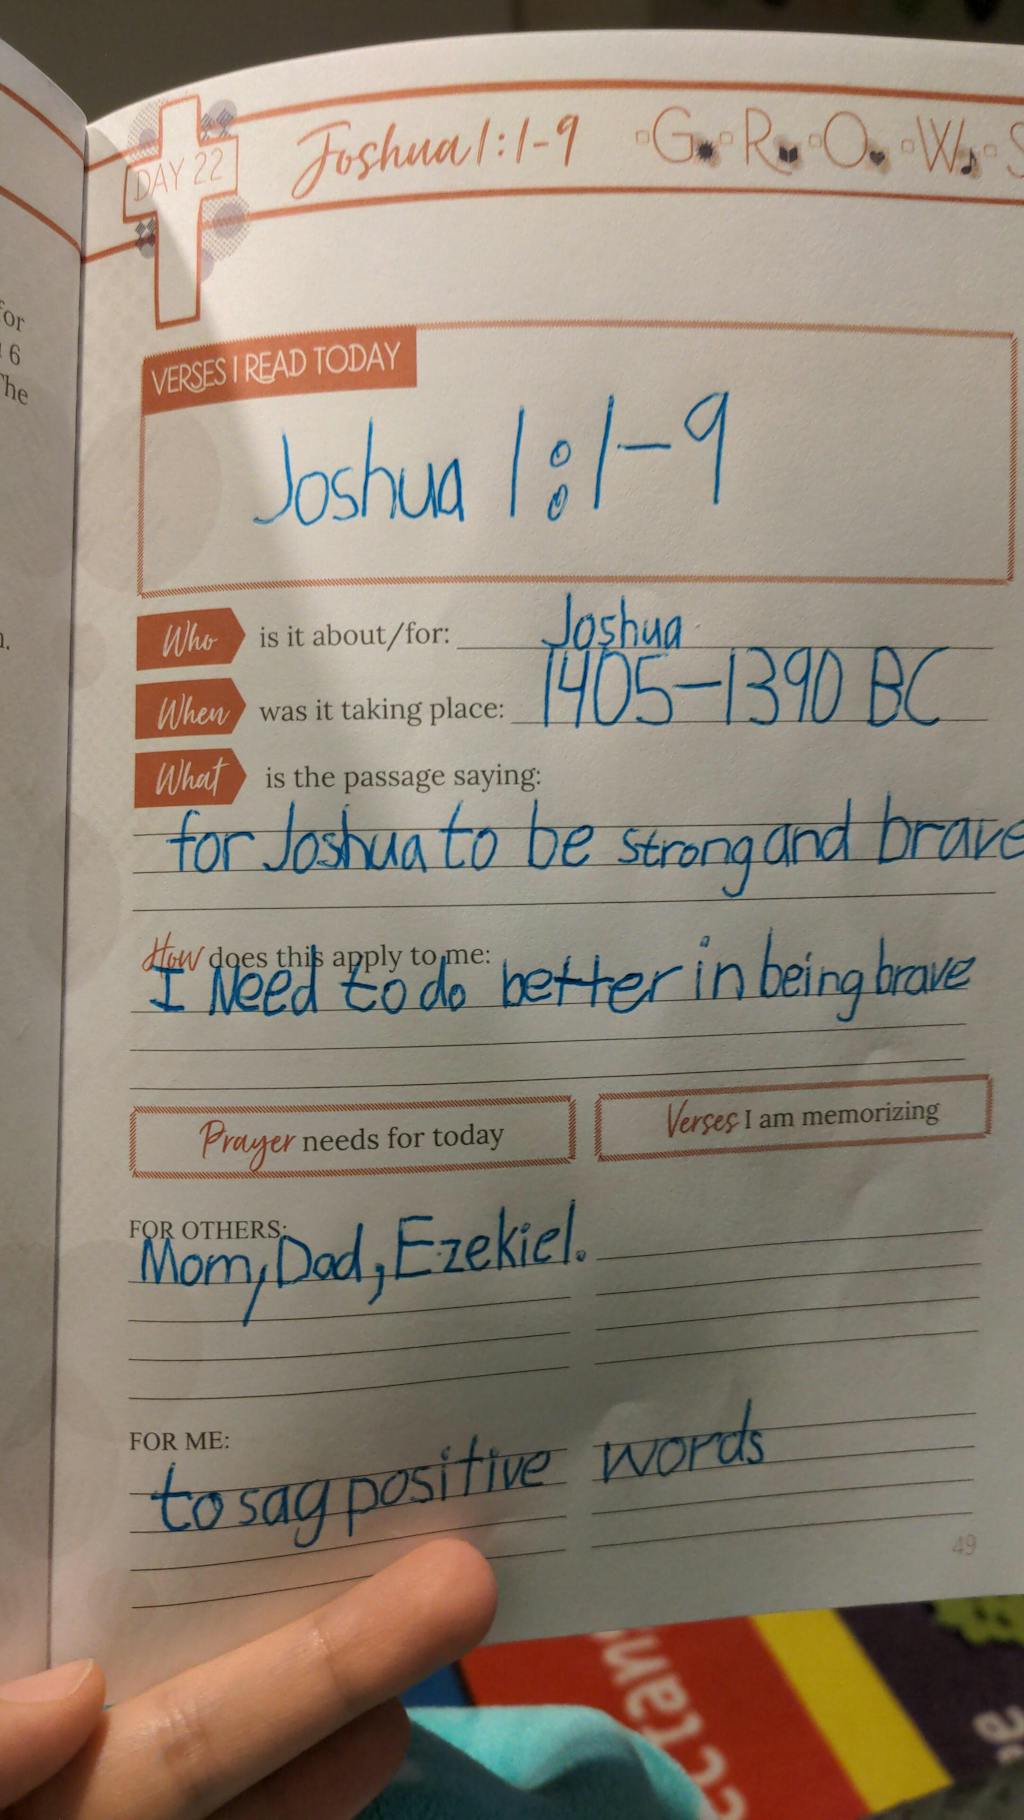 for
6
The
n.
DAY 22
Joshua 1:1-9
G R O W S
VERSES I READ TODAY
Joshua 1:1-9
Who is it about/for: Joshua
When was it taking place: 1405-1390 BC
What is the passage saying:
for Joshua to be strong and brave
How does this apply to me:
I Need to do better in being brave
Prayer needs for today
Verses I am memorizing
FOR OTHERS:
Mom, Dad, Ezekiel.
FOR ME:
to say positive words
49